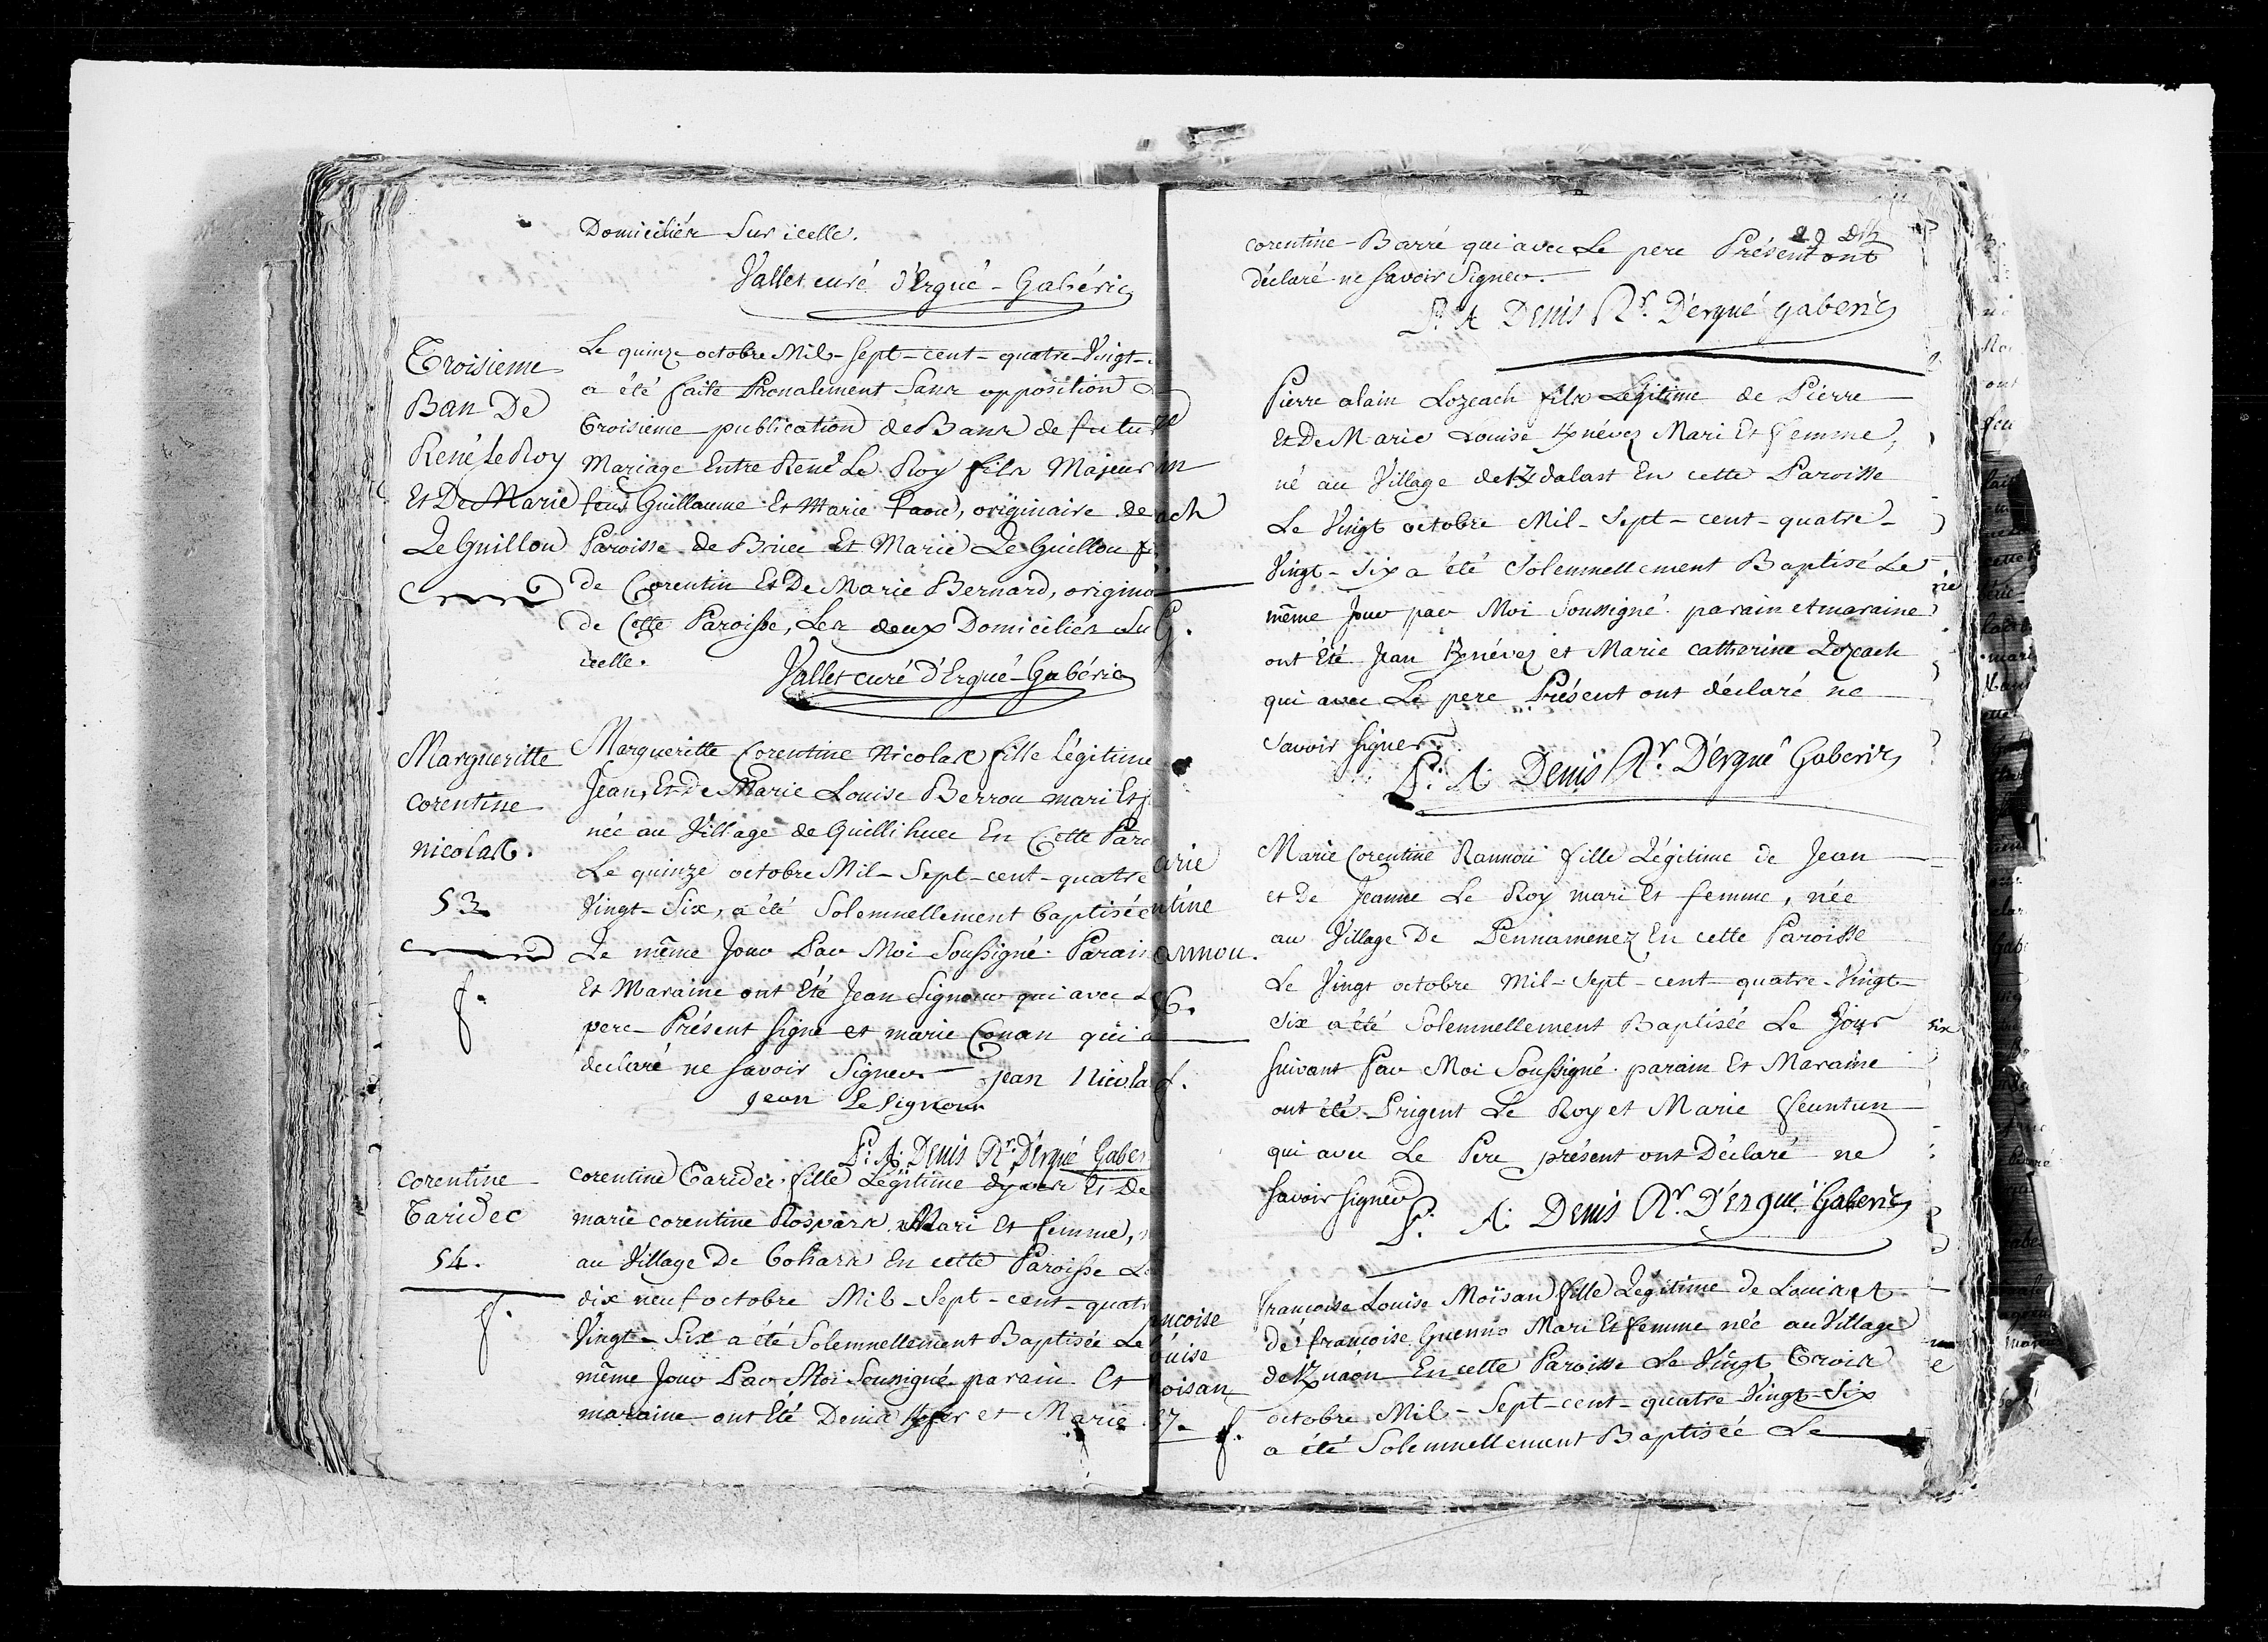 Domiciliés Sur icelle.
Vallet curé d'Ergué-Gabéric
Troisieme
Ban De
René Le Roy
Et De Marie
Le Guillou
Le quinze octobre Mil-Sept-cent-quatre-Vingt-
a été faite Pronalement Sans opposition
Troisieme publication de Bans de futur
Mariage Entre René Le Roy fils Majeur
feus Guillaume Et Marie faou, originaire de
Paroisse de Briec Et Marie Le Guillou
de Corentin Et De Marie Bernard, origina
de Cette Paroisse, Les deux Domiciliés Su
icelle.
Vallet curé d'Ergué-Gabéric
Margueritte
Corentine
nicolas.
53.
f.
Margueritte Corentine Nicolas fille légitime
Jean, Et de Marie Louise Berrou mari Et
née au Village de Quillihuec En Cette Paro
Le quinze octobre Mil-Sept-cent-quatre
Vingt-Six, a été Solemnellement baptisée
Le même Jour Par Moi Soussigné. Parain
Et Maraine ont Eté Jean Signour qui avec
pere Présent signe et marie Conan qui a
declaré ne Savoir Signer Jean Nicola
Jean Le Signour
P. A. Denis Rr. D'érgué Gaber
Corentine
Taridec
54.
f.
Corentine Taridec fille Légitime d'yves Et De
marie corentine Rospars Mari Et femme,
au Village De Bohars En cette Paroisse Le
dix neuf octobre Mil-Sept-cent-quatr
Vingt-Six a été Solemnellement Baptisée Le
même Jour Par Moi Soussigné. parain Et
maraine ont Eté Denis et Marie
in
ach
G.
arie
entine
annou.
56.
f.
ancoise
ouise
oisan
57. f.
corentine Barré qui avec Le pere Présent ont
déclaré ne Savoir Signer.
P. A Denis Rr. D'érgué gaberic
Pierre alain Lozeach fils Légitime de Pierre
Et De Marie Louise Kznévez Mari Et femme,
né au Village de Kdalast En cette Paroisse
Le Vingt octobre Mil-Sept-cent-quatre-
Vingt-Six a été Solemnellement Baptisé Le
même Jour par Moi Soussigné. parain et maraine
ont Eté Jean Kznévez et Marie catherine Lozeach
qui avec Le pere Présent ont déclaré ne
Savoir signer.
P. A. Denis Rr. D'érgué Gaberic
Marie Corentine Rannou fille Légitime de Jean
et De Jeanne Le Roy mari Et femme, née
au Village De Pennamenez En cette Paroisse
Le Vingt octobre Mil-Sept-cent-quatre-Vingt-
Six a été Solemnellement Baptisée Le Jour
suivant Par Moi Soussigné. parain Et Maraine
ont été Prigent Le Roy et Marie feuntun
qui avec Le Pere présent ont Déclaré ne
Savoir signer
P. A. Denis Rr. D'érgué Gaberic
françoise Louise Moïsan fille Légitime de Louis et
de françoise Guennо Mari Et femme née au Village
de Kznaon En cette Paroisse Le Vingt Trois
octobre Mil-Sept-cent-quatre Vingt-Six
a été Solemnellement Baptisée Le